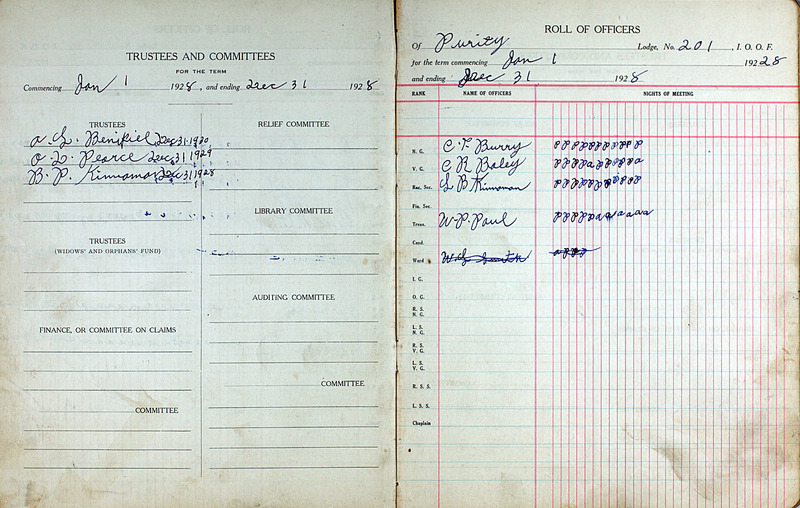 TRUSTEES AND COMMITTEES
FOR THE TERM
Commencing Jan 1 1928, and ending Dec 31 1928
TRUSTEES
A. L. Benifiel Dec 31 1930
O. D. Pearce Dec 31 1929
B. P. Kinnaman Dec 31 1928
TRUSTEES
(WIDOWS' AND ORPHANS' FUND)
FINANCE, OR COMMITTEE ON CLAIMS
COMMITTEE
RELIEF COMMITTEE
LIBRARY COMMITTEE
AUDITING COMMITTEE
COMMITTEE
ROLL OF OFFICERS
Of Purity Lodge, No. 201, I. O. O. F.
for the term commencing Jan 1 192 28
and ending Dec 31 1928
RANK NAME OF OFFICERS NIGHTS OF MEETING
N. G. C. T. Burry
V. G. C R Baley
Rec. Sec. L B Kinnaman
Fin. Sec.
Treas. W. P. Paul
Cond.
Ward
I. G.
O. G.
R. S. N. G.
L. S. N. G.
R. S. V. G.
L. S. V. G.
R. S. S.
L. S. S.
Chaplain